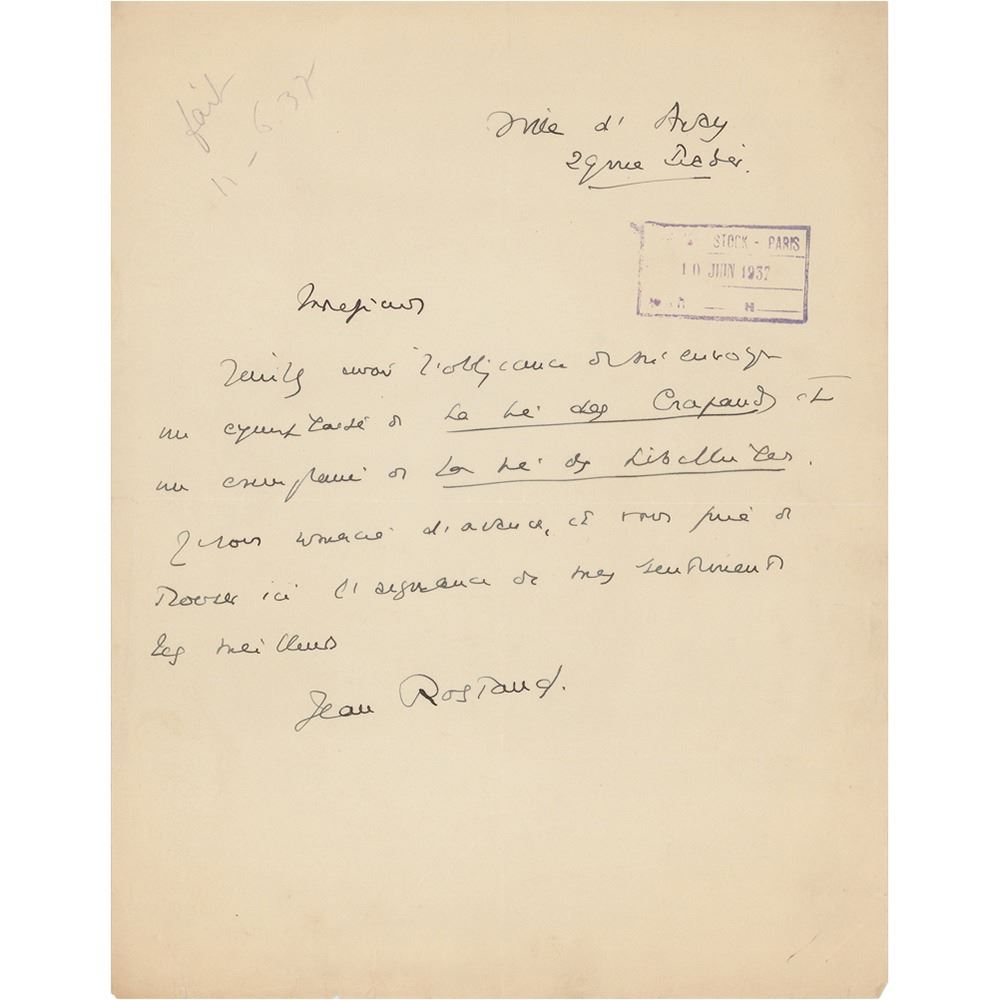 fait
11-6.37
Ville d'Avray
29 rue Pradier.
STOCK - PARIS
10 JUIN 1937
Monsieur
Veuillez avoir l'obligeance de m'envoyer
un exemplaire de La Vie des Crapauds et
un exemplaire de La Vie des Libellules.
Je vous remercie d'avance, et vous prie de
trouver ici l'assurance de mes sentiments
les meilleurs
Jean Rostand.